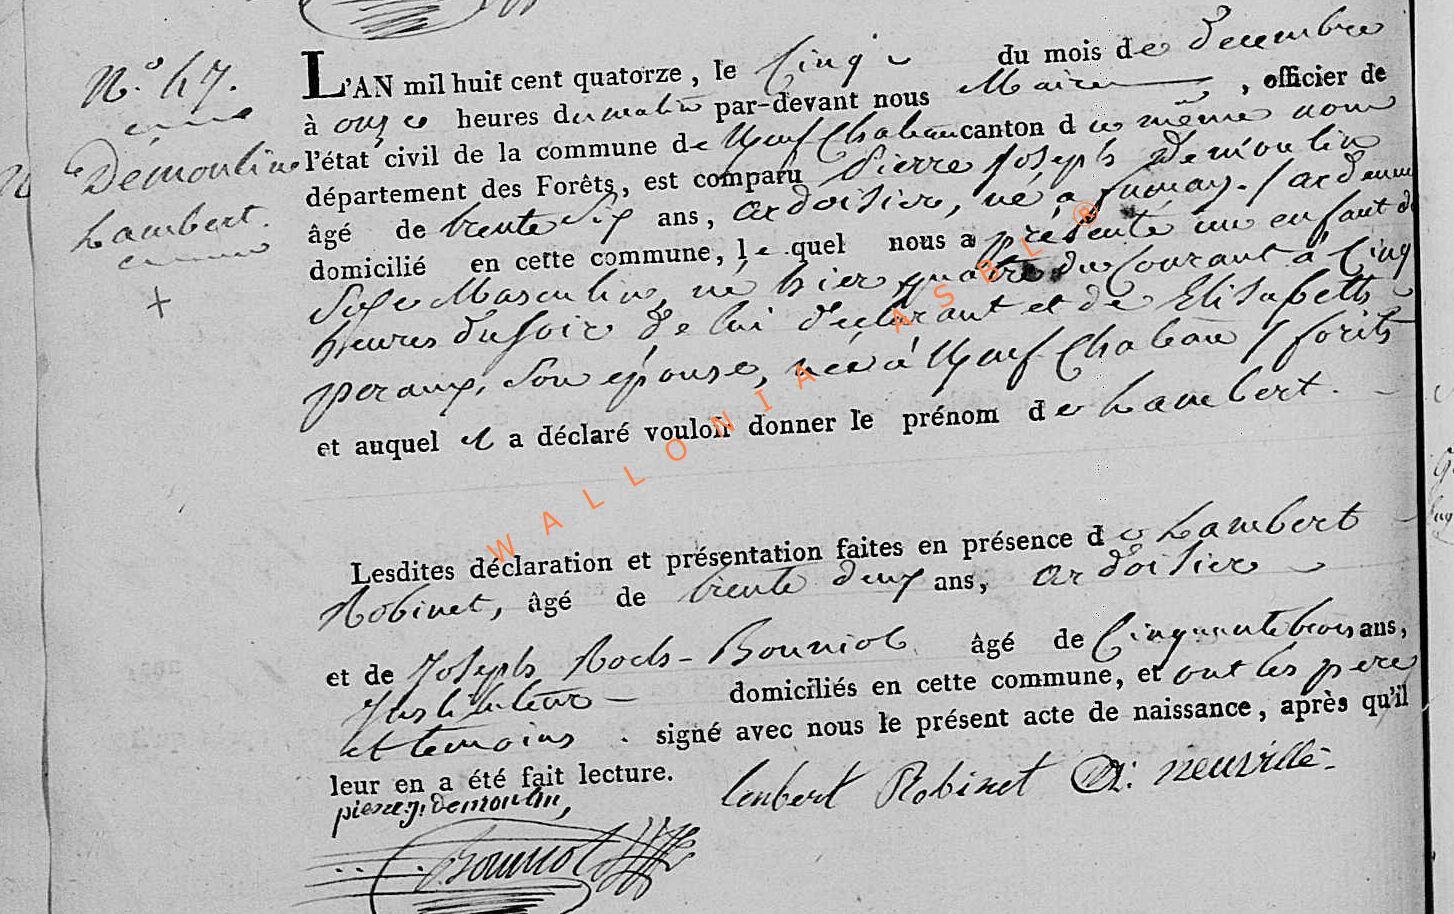 N.° 47.
Démouline
Lambert.
L'AN mil huit cent quatorze, le Cinq du mois de Decembre
à onze heures du matin par-devant nous Maire, officier de
l'état civil de la commune de Neuf Chateau canton de même nom
département des Forêts, est comparu Pierre Joseph Demoulin
âgé de trente Six ans, ardoisier, né a fumay. / ardenne
domicilié en cette commune, le quel nous a présenté un enfant de
Sexe Masculin, né hier quatre du Courant à Cinq
heures du soir de lui déclarant et de Elisabeth
son épouse, née à Neuf Chateau / forêts
et auquel il a déclaré vouloir donner le prénom de Lambert.
Lesdites déclaration et présentation faites en présence de Lambert
Robinet, âgé de trente deux ans, ardoisier
et de Joseph Roch - Bouniol âgé de Cinquante trois ans,
Instituteur - domiciliés en cette commune, et ont les pere
et temoins . signé avec nous le présent acte de naissance, après qu'il
leur en a été fait lecture.
pierre.j. Demoulin,
lenbert Robinet neuville
Bouniol
WALLONIA ASBL ®